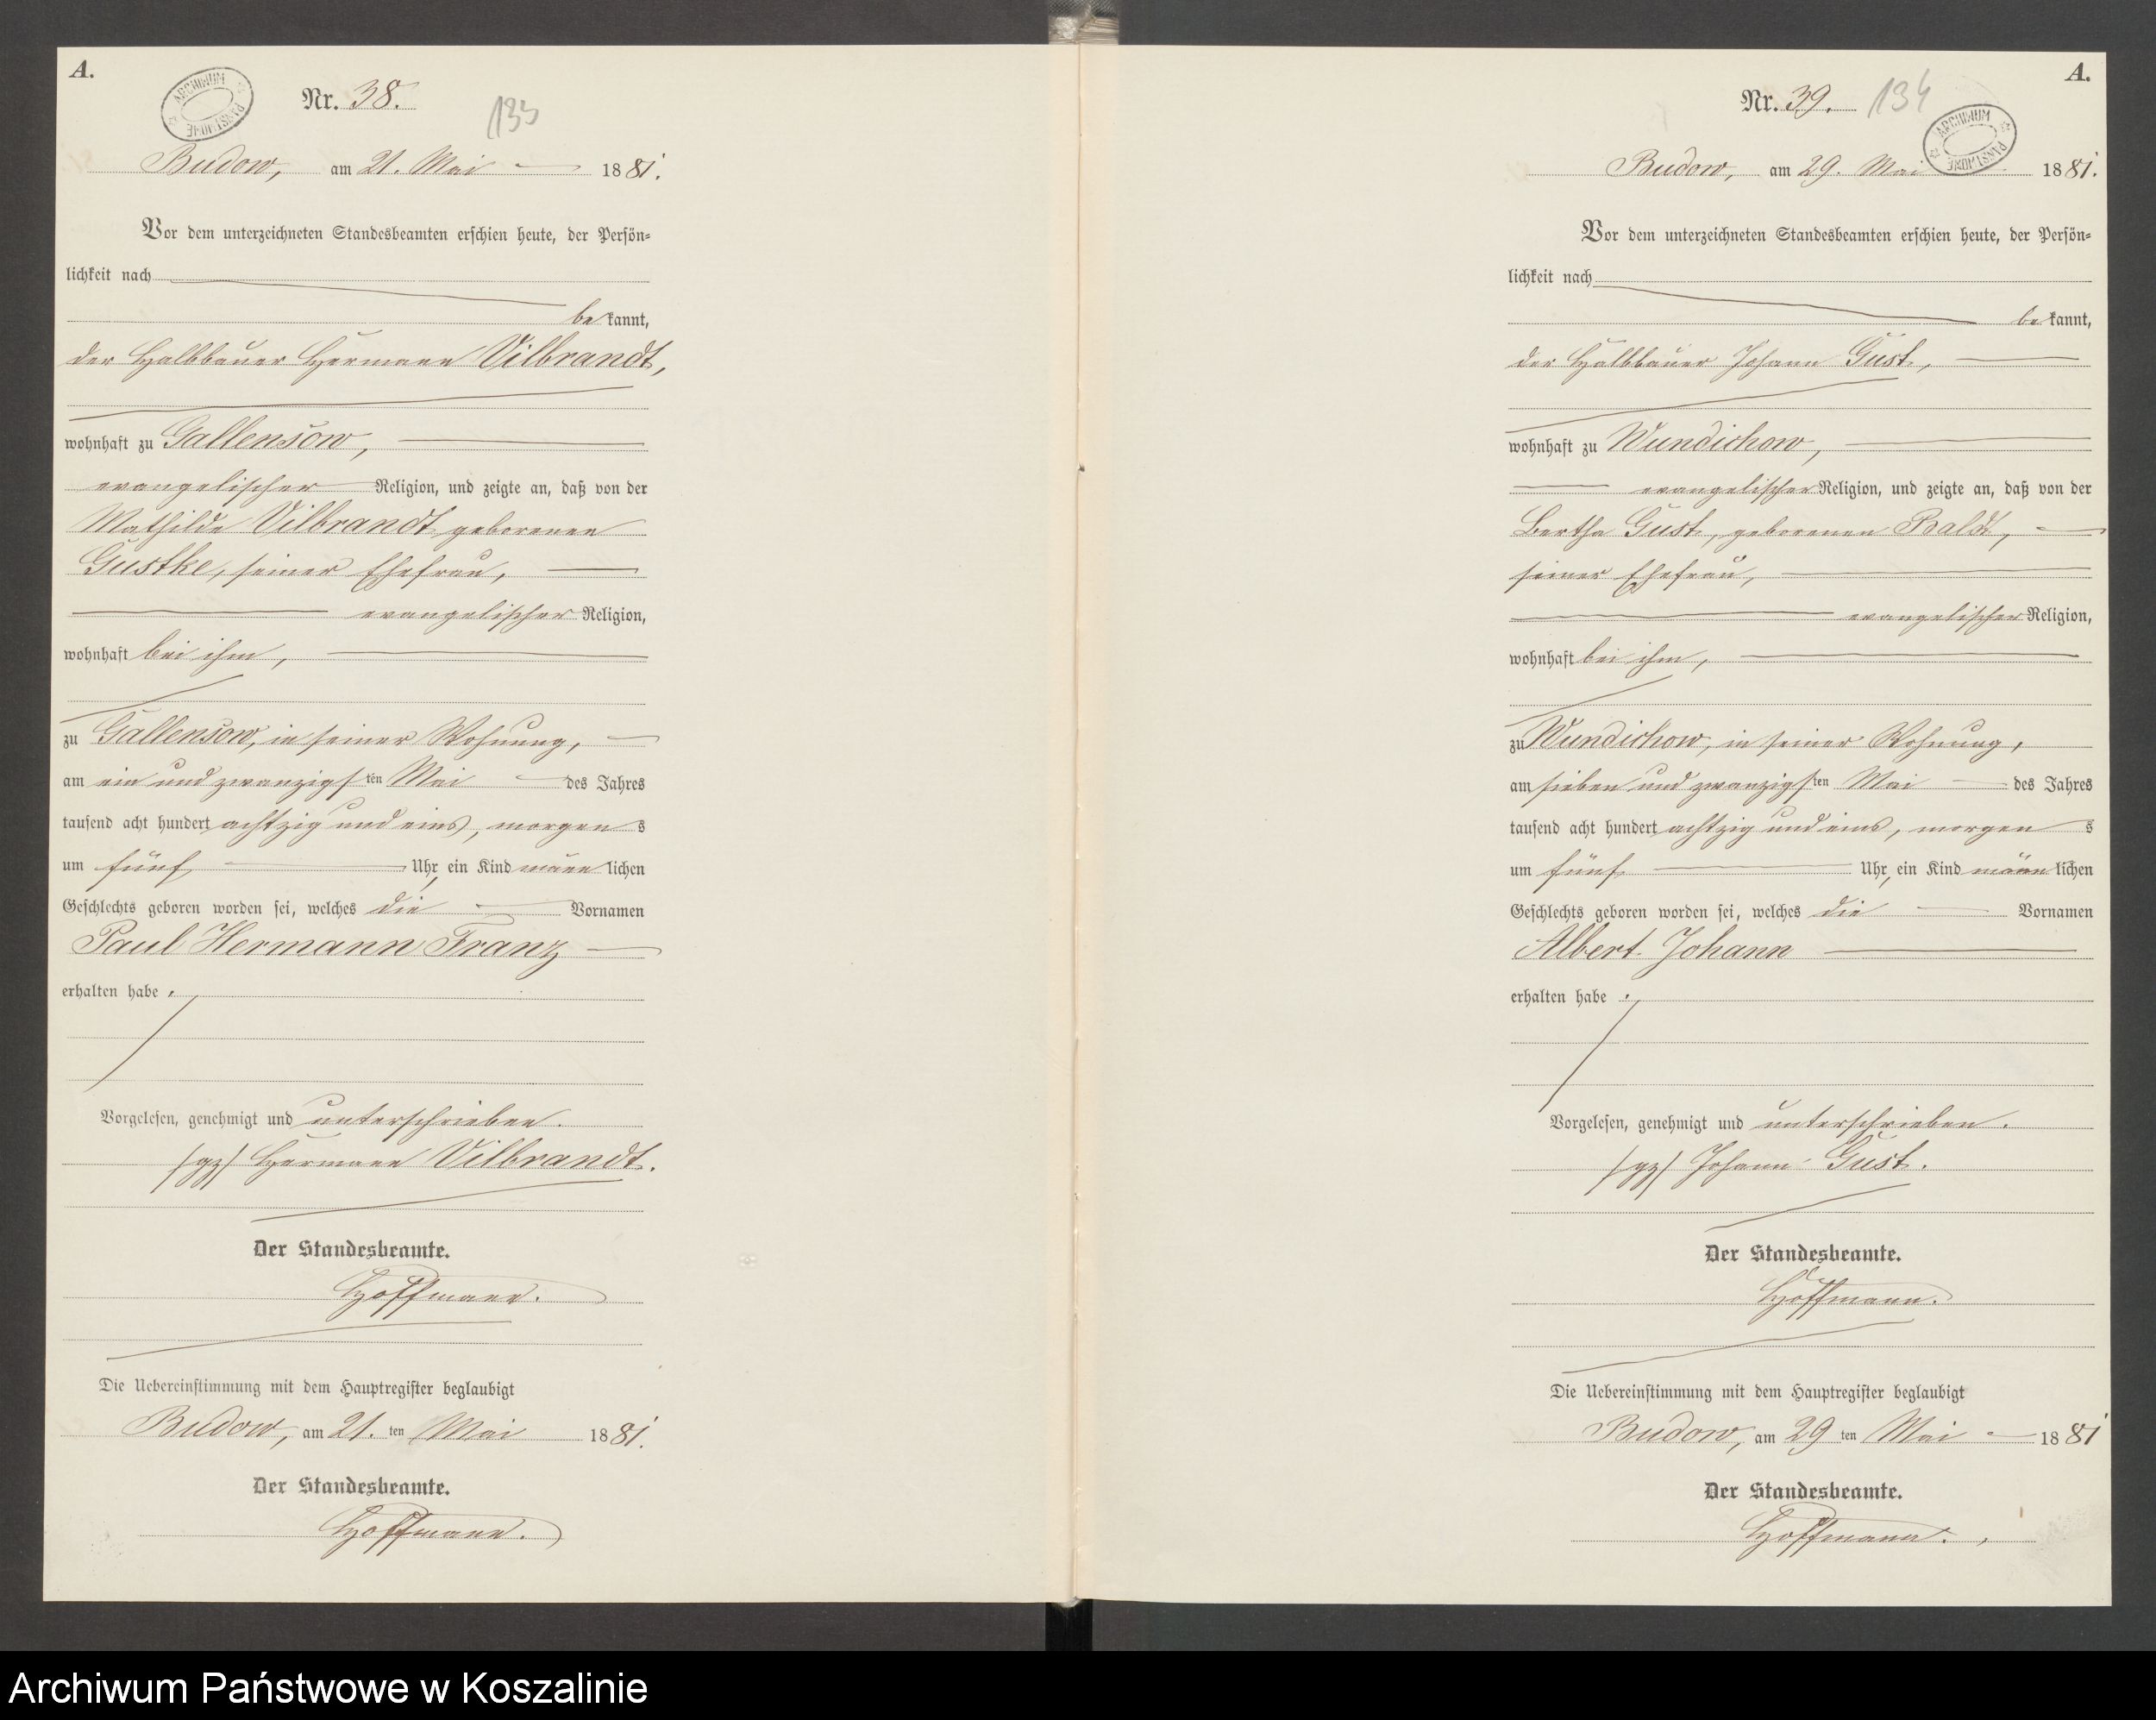 A.
ARCHIWUM PAŃSTWOWE
Nr. 38.
133
Budow, am 21. Mai 1881.
Vor dem unterzeichneten Standesbeamten erschien heute, der Persön-
lichkeit nach
bekannt,
der Halbbauer Hermann Vilbrandt,
wohnhaft zu Gallensow,
evangelischer Religion, und zeigte an, daß von der
Mathilde Vilbrandt geborenen
Gustke, seiner Ehefrau,
evangelischer Religion,
wohnhaft bei ihm,
zu Gallensow, in seiner Wohnung,
am ein und zwanzigsten Mai des Jahres
tausend acht hundert achtzig und eins, morgens
um fünf Uhr, ein Kind männlichen
Geschlechts geboren worden sei, welches die Vornamen
Paul Hermann Franz
erhalten habe.
Vorgelesen, genehmigt und unterschrieben.
/gz/ Hermann Vilbrandt.
Der Standesbeamte.
Hoffmann.
Die Uebereinstimmung mit dem Hauptregister beglaubigt
Budow, am 21. ten Mai 1881.
Der Standesbeamte.
Hoffmann.
A.
Nr. 39.
134
ARCHIWUM PAŃSTWOWE
Budow, am 29. Mai 1881.
Vor dem unterzeichneten Standesbeamten erschien heute, der Persön-
lichkeit nach
bekannt,
der Halbbauer Johann Gust,
wohnhaft zu Wundichow,
evangelischer Religion, und zeigte an, daß von der
Bertha Gust, geborenen Baldt,
seiner Ehefrau,
evangelischer Religion,
wohnhaft bei ihm,
zu Wundichow, in seiner Wohnung,
am sieben und zwanzigsten Mai des Jahres
tausend acht hundert achtzig und eins, morgens
um fünf Uhr, ein Kind männlichen
Geschlechts geboren worden sei, welches die Vornamen
Albert Johann
erhalten habe.
Vorgelesen, genehmigt und unterschrieben.
/gz/ Johann Gust.
Der Standesbeamte.
Hoffmann.
Die Uebereinstimmung mit dem Hauptregister beglaubigt
Budow, am 29 ten Mai 1881
Der Standesbeamte.
Hoffmann.
Archiwum Państwowe w Koszalinie